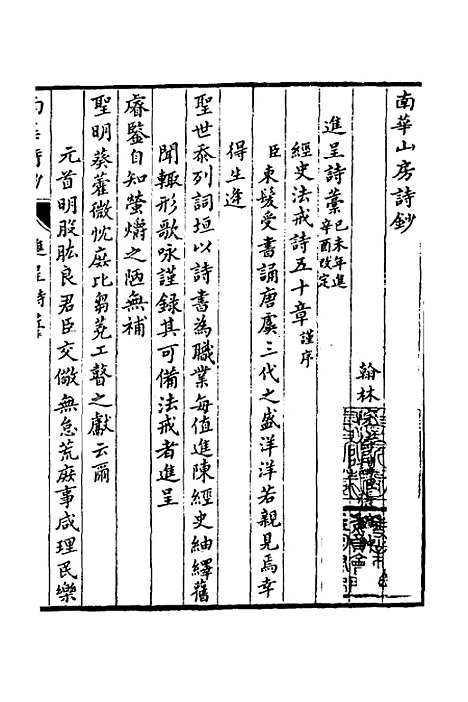 南華山房詩鈔
翰林
進呈詩藳己未年進辛酉改定
經史法戒詩五十章謹序
臣束髮受書誦唐虞三代之盛洋洋若親見焉幸
得生逢
聖世忝列詞垣以詩書為職業每值進陳經史紬繹舊
聞輒形歌咏謹錄其可備法戒者進呈
睿鑒自知螢爝之陋無補
聖明葵藿微忱庶比芻蕘工瞽之獻云爾
元首明股肱良君臣交儆無怠荒庶事咸理民樂
進呈詩藳